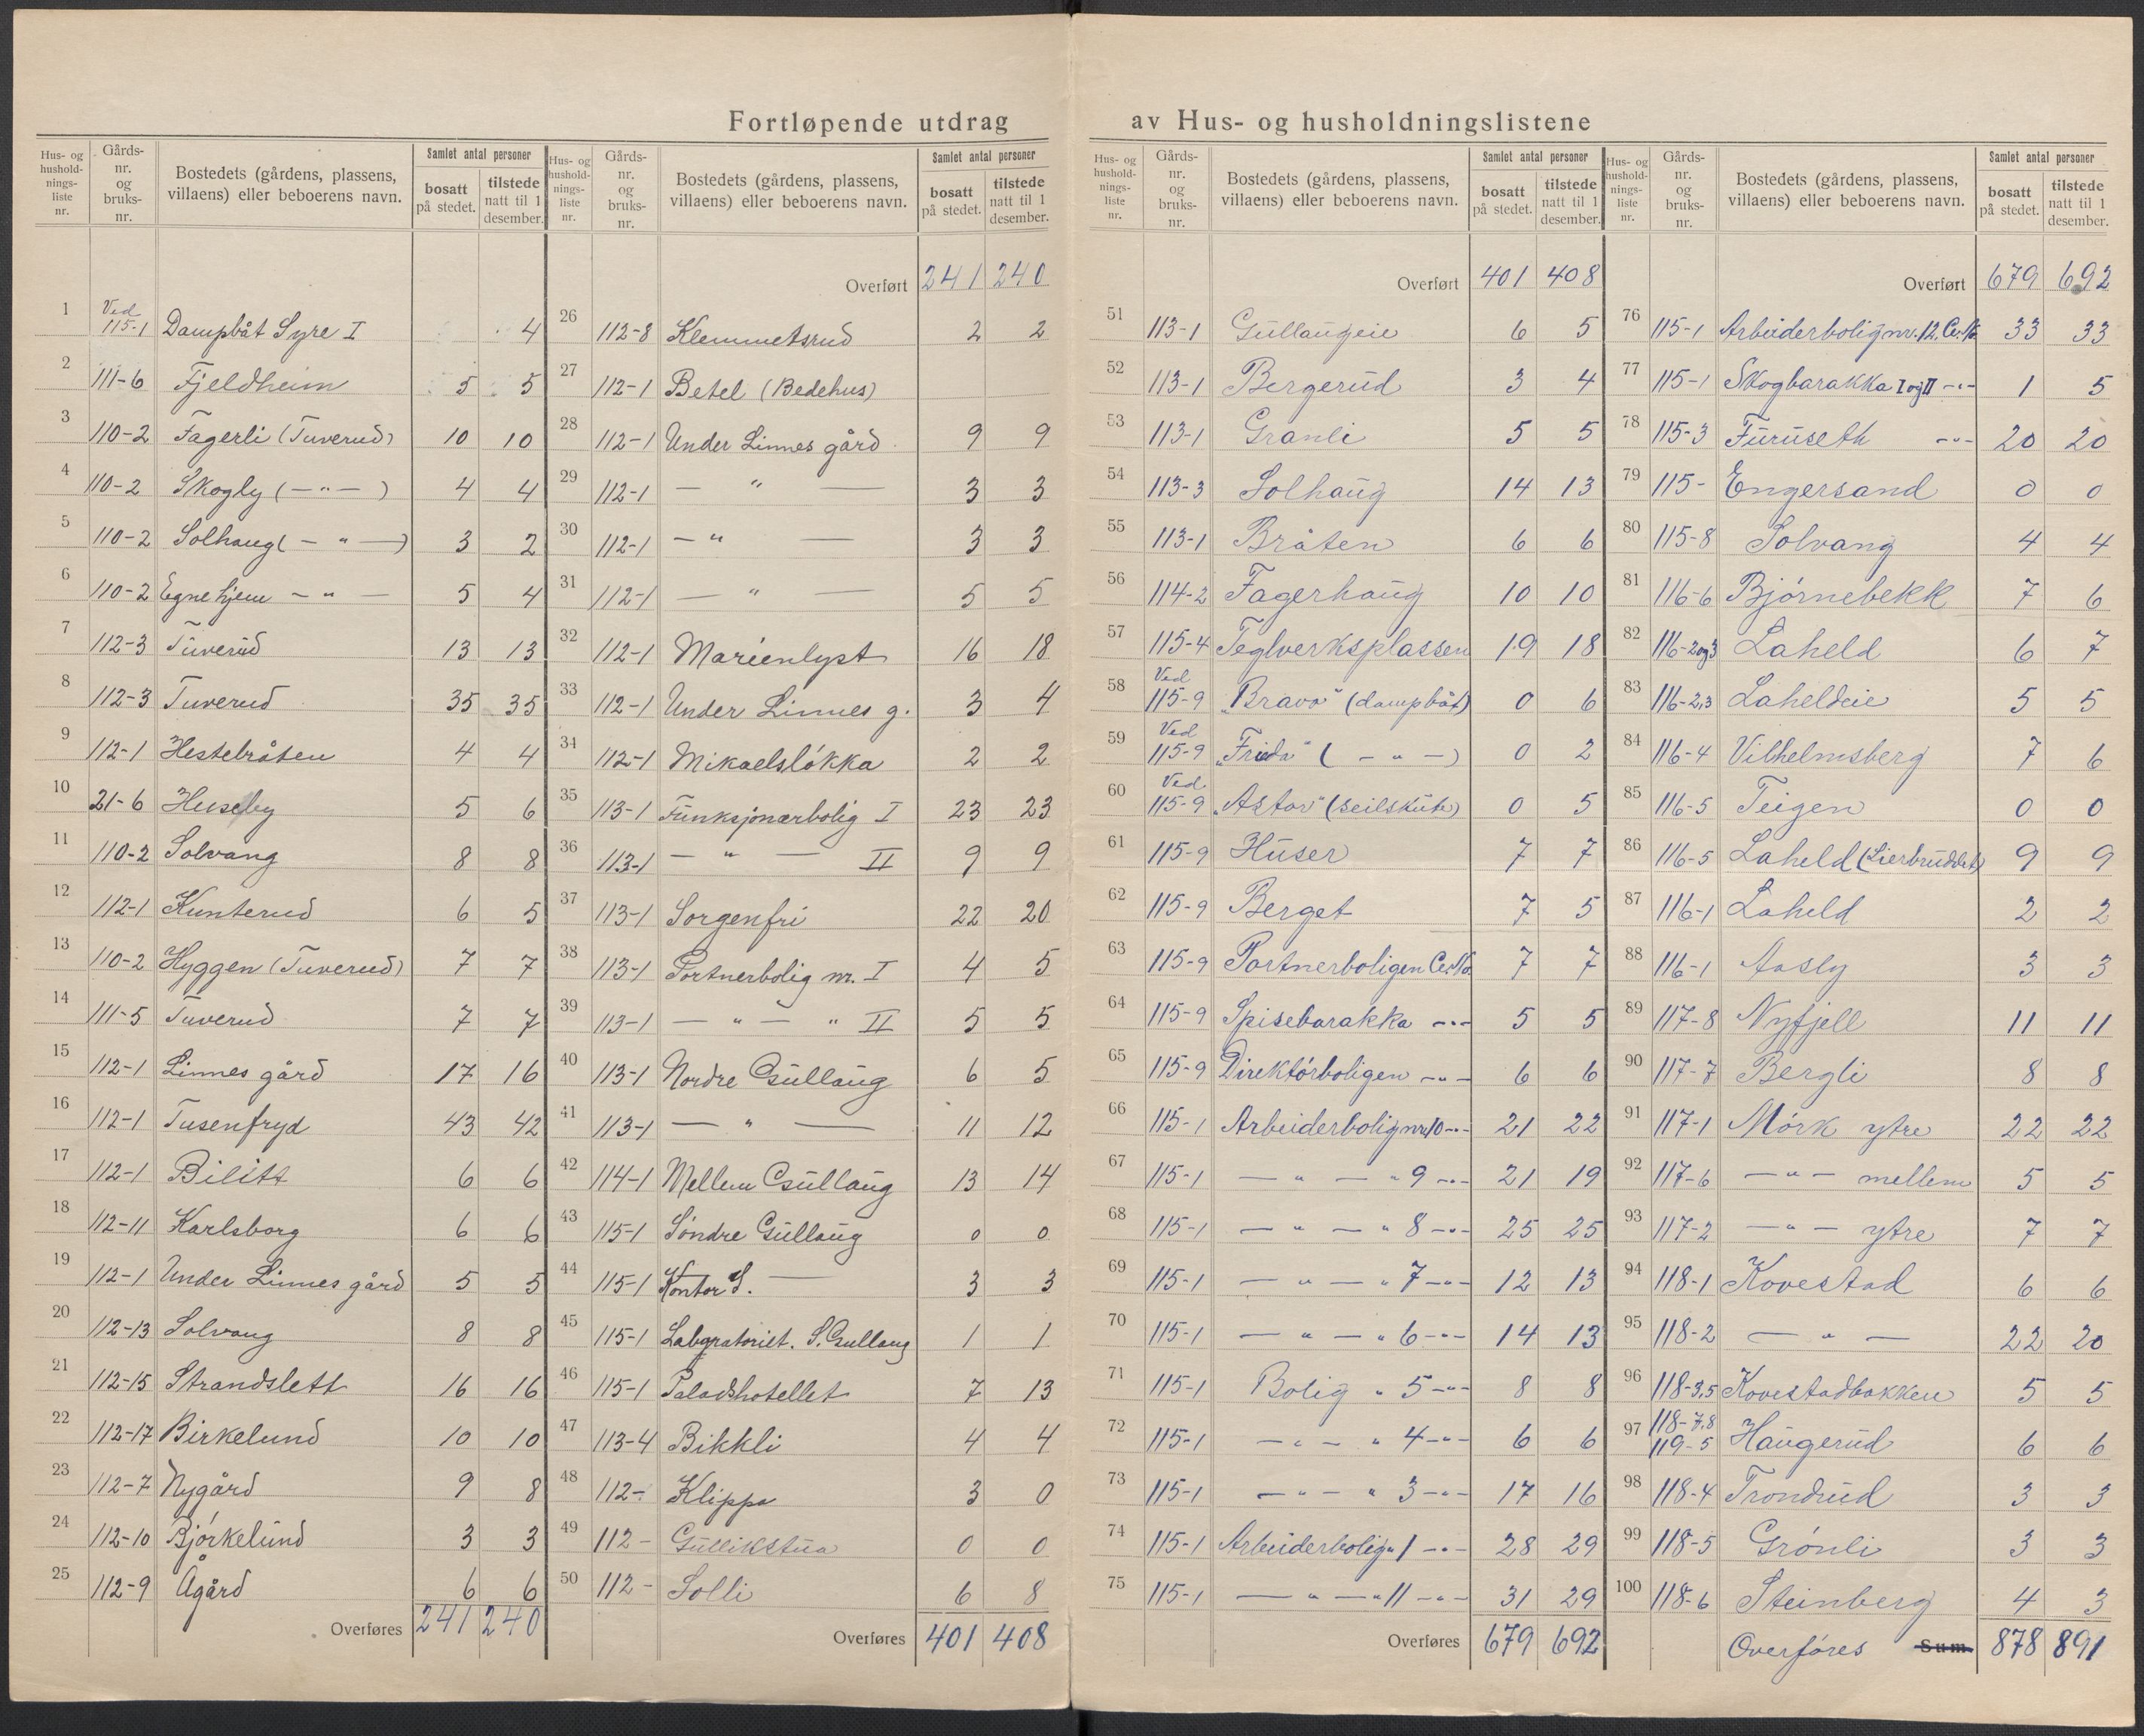 Fortløpende utdrag av Hus- og husholdningslistene
Hus- og hushold-nings-liste nr. | Gårds-nr. og bruks-nr. | Bostedets (gårdens, plassens, villaens) eller beboerens navn. | Samlet antal personer bosatt på stedet. | tilstede natt til 1 desember.
1 Ved 115-1 Dampbåt Syre I 4
2 111-6 Fjeldheim 5 5
3 110-2 Fagerli (Tuverud) 10 10
4 110-2 Skogly (— " —) 4 4
5 110-2 Solhaug (— " —) 3 2
6 110-2 Egnehjem — " — 5 4
7 112-3 Tuverud 13 13
8 112-3 Tuverud 35 35
9 112-1 Hestebråten 4 4
10 21-6 Huseby 5 6
11 110-2 Solvang 8 8
12 112-1 Kunterud 6 5
13 110-2 Hyggen (Tuverud) 7 7
14 111-5 Tuverud 7 7
15 112-1 Linnes gård 17 16
16 112-1 Tusenfryd 43 42
17 112-1 Bilitt 6 6
18 112-11 Karlsborg 6 6
19 112-1 Under Linnes gård 5 5
20 112-13 Solvang 8 8
21 112-15 Strandslett 16 16
22 112-17 Birkelund 10 10
23 112-7 Nygård 9 8
24 112-10 Bjørkelund 3 3
25 112-9 Ågård 6 6
Overføres 241 240
Hus- og hushold-nings-liste nr. | Gårds-nr. og bruks-nr. | Bostedets (gårdens, plassens, villaens) eller beboerens navn. | Samlet antal personer bosatt på stedet. | tilstede natt til 1 desember.
Overført 241 240
26 112-8 Klemmetsrud 2 2
27 112-1 Betel (Bedehus)
28 112-1 Under Linnes gård 9 9
29 112-1 — " — 3 3
30 112-1 — " — 3 3
31 112-1 — " — 5 5
32 112-1 Marienlyst 16 18
33 112-1 Under Linnes g. 3 4
34 112-1 Mikaelsløkka 2 2
35 113-1 Funksjonærbolig I 23 23
36 113-1 — " — II 9 9
37 113-1 Sorgenfri 22 20
38 113-1 Portnerbolig nr. I 4 5
39 113-1 — " — " II 5 5
40 113-1 Nordre Gullaug 6 5
41 113-1 — " — 11 12
42 114-1 Mellem Gullaug 13 14
43 115-1 Søndre Gullaug 0 0
44 115-1 Kontor S. — 3 3
45 115-1 Laboratoriet. S. Gullaug 1 1
46 115-1 Paladshotellet 7 13
47 113-4 Bikkli 4 4
48 112- Klippa 3 0
49 112- Gullikstua 0 0
50 112- Solli 6 8
Overføres 401 408
Hus- og hushold-nings-liste nr. | Gårds-nr. og bruks-nr. | Bostedets (gårdens, plassens, villaens) eller beboerens navn. | Samlet antal personer bosatt på stedet. | tilstede natt til 1 desember.
Overført 401 408
51 113-1 Gullaugeie 6 5
52 113-1 Bergerud 3 4
53 113-1 Granli 5 5
54 113-3 Solhaug 14 13
55 113-1 Bråten 6 6
56 114-2 Fagerhaug 10 10
57 115-4 Teglverksplassen 19 18
58 Ved 115-9 "Bravo" (dampbåt) 0 6
59 Ved 115-9 "Frida" (— " —) 0 2
60 Ved 115-9 "Astor" (seilskute) 0 5
61 115-9 Huser 7 7
62 115-9 Berget 7 5
63 115-9 Portnerboligen 7 7
64 115-9 Spisebarakka -"- 5 5
65 115-9 Direktørboligen -"- 6 6
66 115-1 Arbeiderbolig nr. 10 -"- 21 22
67 115-1 — " — " 9 -"- 21 19
68 115-1 — " — " 8 -"- 25 25
69 115-1 — " — " 7 -"- 12 13
70 115-1 — " — " 6 -"- 14 13
71 115-1 Bolig " 5 -"- 8 8
72 115-1 — " — " 4 -"- 6 6
73 115-1 — " — " 3 -"- 17 16
74 115-1 Arbeiderbolig " 1 -"- 28 29
75 115-1 — " — " 11 -"- 31 29
Overføres 679 692
Hus- og hushold-nings-liste nr. | Gårds-nr. og bruks-nr. | Bostedets (gårdens, plassens, villaens) eller beboerens navn. | Samlet antal personer bosatt på stedet. | tilstede natt til 1 desember.
Overført 679 692
76 115-1 Arbeiderbolig nr. 12. 33 33
77 115-1 Skogbarakka I og II -"- 1 5
78 115-3 Furuseth -"- 20 20
79 115- Engersand 0 0
80 115-8 Solvang 4 4
81 116-6 Bjørnebekk 7 6
82 116-2og3 Laheld 6 7
83 116-2,3 Laheldeie 5 5
84 116-4 Vilhelmsberg 7 6
85 116-5 Teigen 0 0
86 116-5 Laheld (Lierbruddet) 9 9
87 116-1 Laheld 2 2
88 116-1 Aasly 3 3
89 117-8 Nyfjell 11 11
90 117-7 Bergli 8 8
91 117-1 Mørk ytre 22 22
92 117-6 — " — mellem 5 5
93 117-2 — " — ytre 7 7
94 118-1 Kovestad 6 6
95 118-2 — " — 22 20
96 118-3,5 Kovestadbakken 5 5
97 118-7,8 119-5 Haugerud 6 6
98 118-4 Trondrud 3 3
99 118-5 Grønli 3 3
100 118-6 Steinberg 4 3
Overføres Sum 878 891